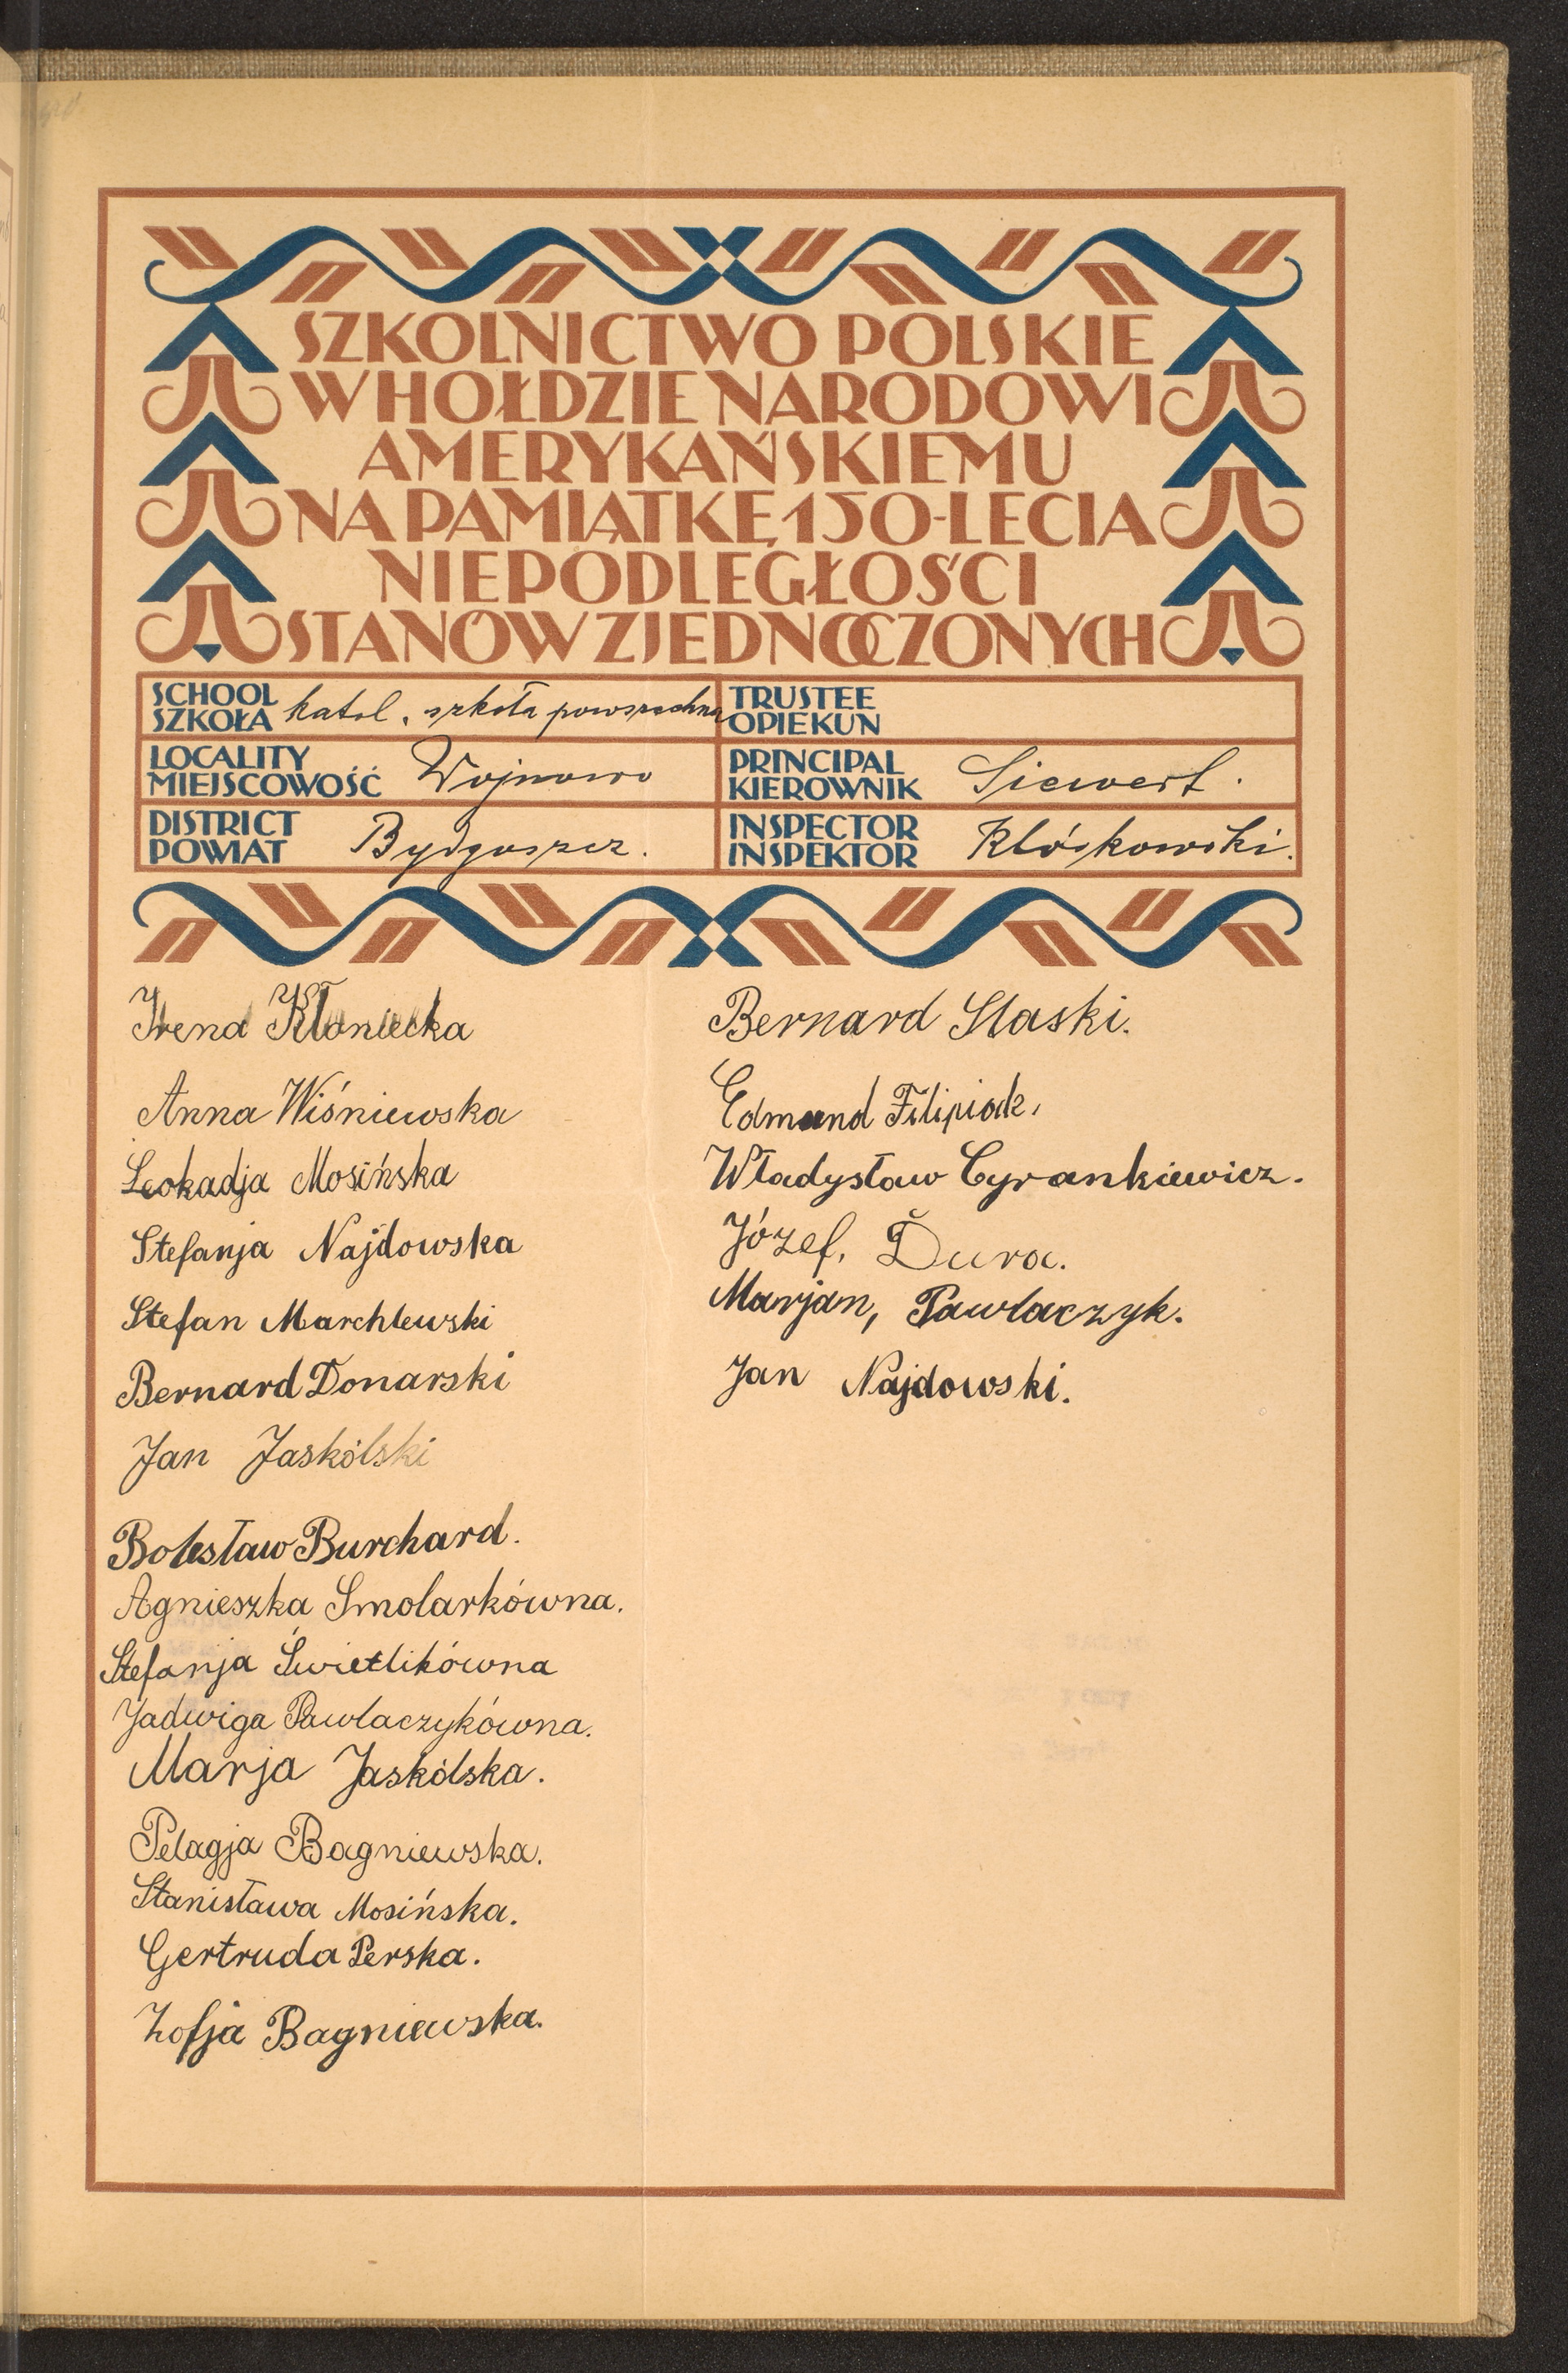 SZKOLNICTWO POLSKIE
W HOŁDZIE NARODOWI
AMERYKAŃSKIEMU
NA PAMIĄTKĘ 150-LECIA
NIEPODLEGŁOŚCI
STANÓW ZJEDNOCZONYCH
SCHOOL
SZKOŁA katol. szkoła powszechna
TRUSTEE
OPIEKUN
LOCALITY
MIEJSCOWOŚĆ Wojnowo
PRINCIPAL
KIEROWNIK Siewert.
DISTRICT
POWIAT Bydgoszcz.
INSPECTOR
INSPEKTOR Kłóskowski.
Irena Kłoniecka
Anna Wiśniewska
Leokadja Mosińska
Stefanja Najdowska
Stefan Marchlewski
Bernard Donarski
Jan Jaskólski
Bolesław Burchard.
Agnieszka Smolarkówna.
Stefanja Świetlikówna
Jadwiga Pawlaczykówna.
Marja Jaskólska.
Pelagja Bagniewska.
Stanisława Mosińska.
Gertruda Perska.
Zofja Bagniewska.
Bernard Slaski.
Edmund Filipiak.
Władysław Cyrankiewicz.
Józef, Dura.
Marjan, Pawlaczyk.
Jan Najdowski.